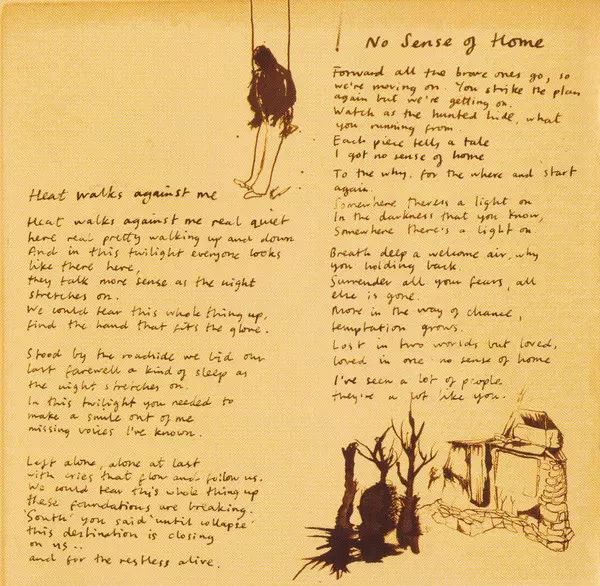 Heat walks against me
Heat walks against me real quiet
here real pretty walking up and down
And in this twilight everyone looks
like there here,
they talk more sense as the night
stretches on.
We could tear this whole thing up,
find the hand that fits the glove.
Stood by the roadside we bid our
last farewell a kind of sleep as
the night stretches on.
In this twilight you needed to
make a smile out of me
missing voices I've known.
Left alone, alone at last
with cries that flow and follow us.
We could tear this whole thing up
these foundations are breaking.
'South' you said 'until collapse'
this destination is closing
on us..
and for the restless alive.
No Sense of Home
Forward all the brave ones go, so
we're moving on. You strike the plan
again but we're getting on.
Watch as the hunted hide, what
you running from.
Each piece tells a tale
I got no sense of home
To the why. for the where and start
again.
Somewhere theres a light on
In the darkness that you know,
Somewhere there's a light on.
Breath deep a welcome air, why
you holding back.
Surrender all your fears, all
else is gone.
More in the way of chance,
temptation grows.
Lost in two worlds but loved,
loved in one no sense of home
I've seen a lot of people
they're a lot like you.